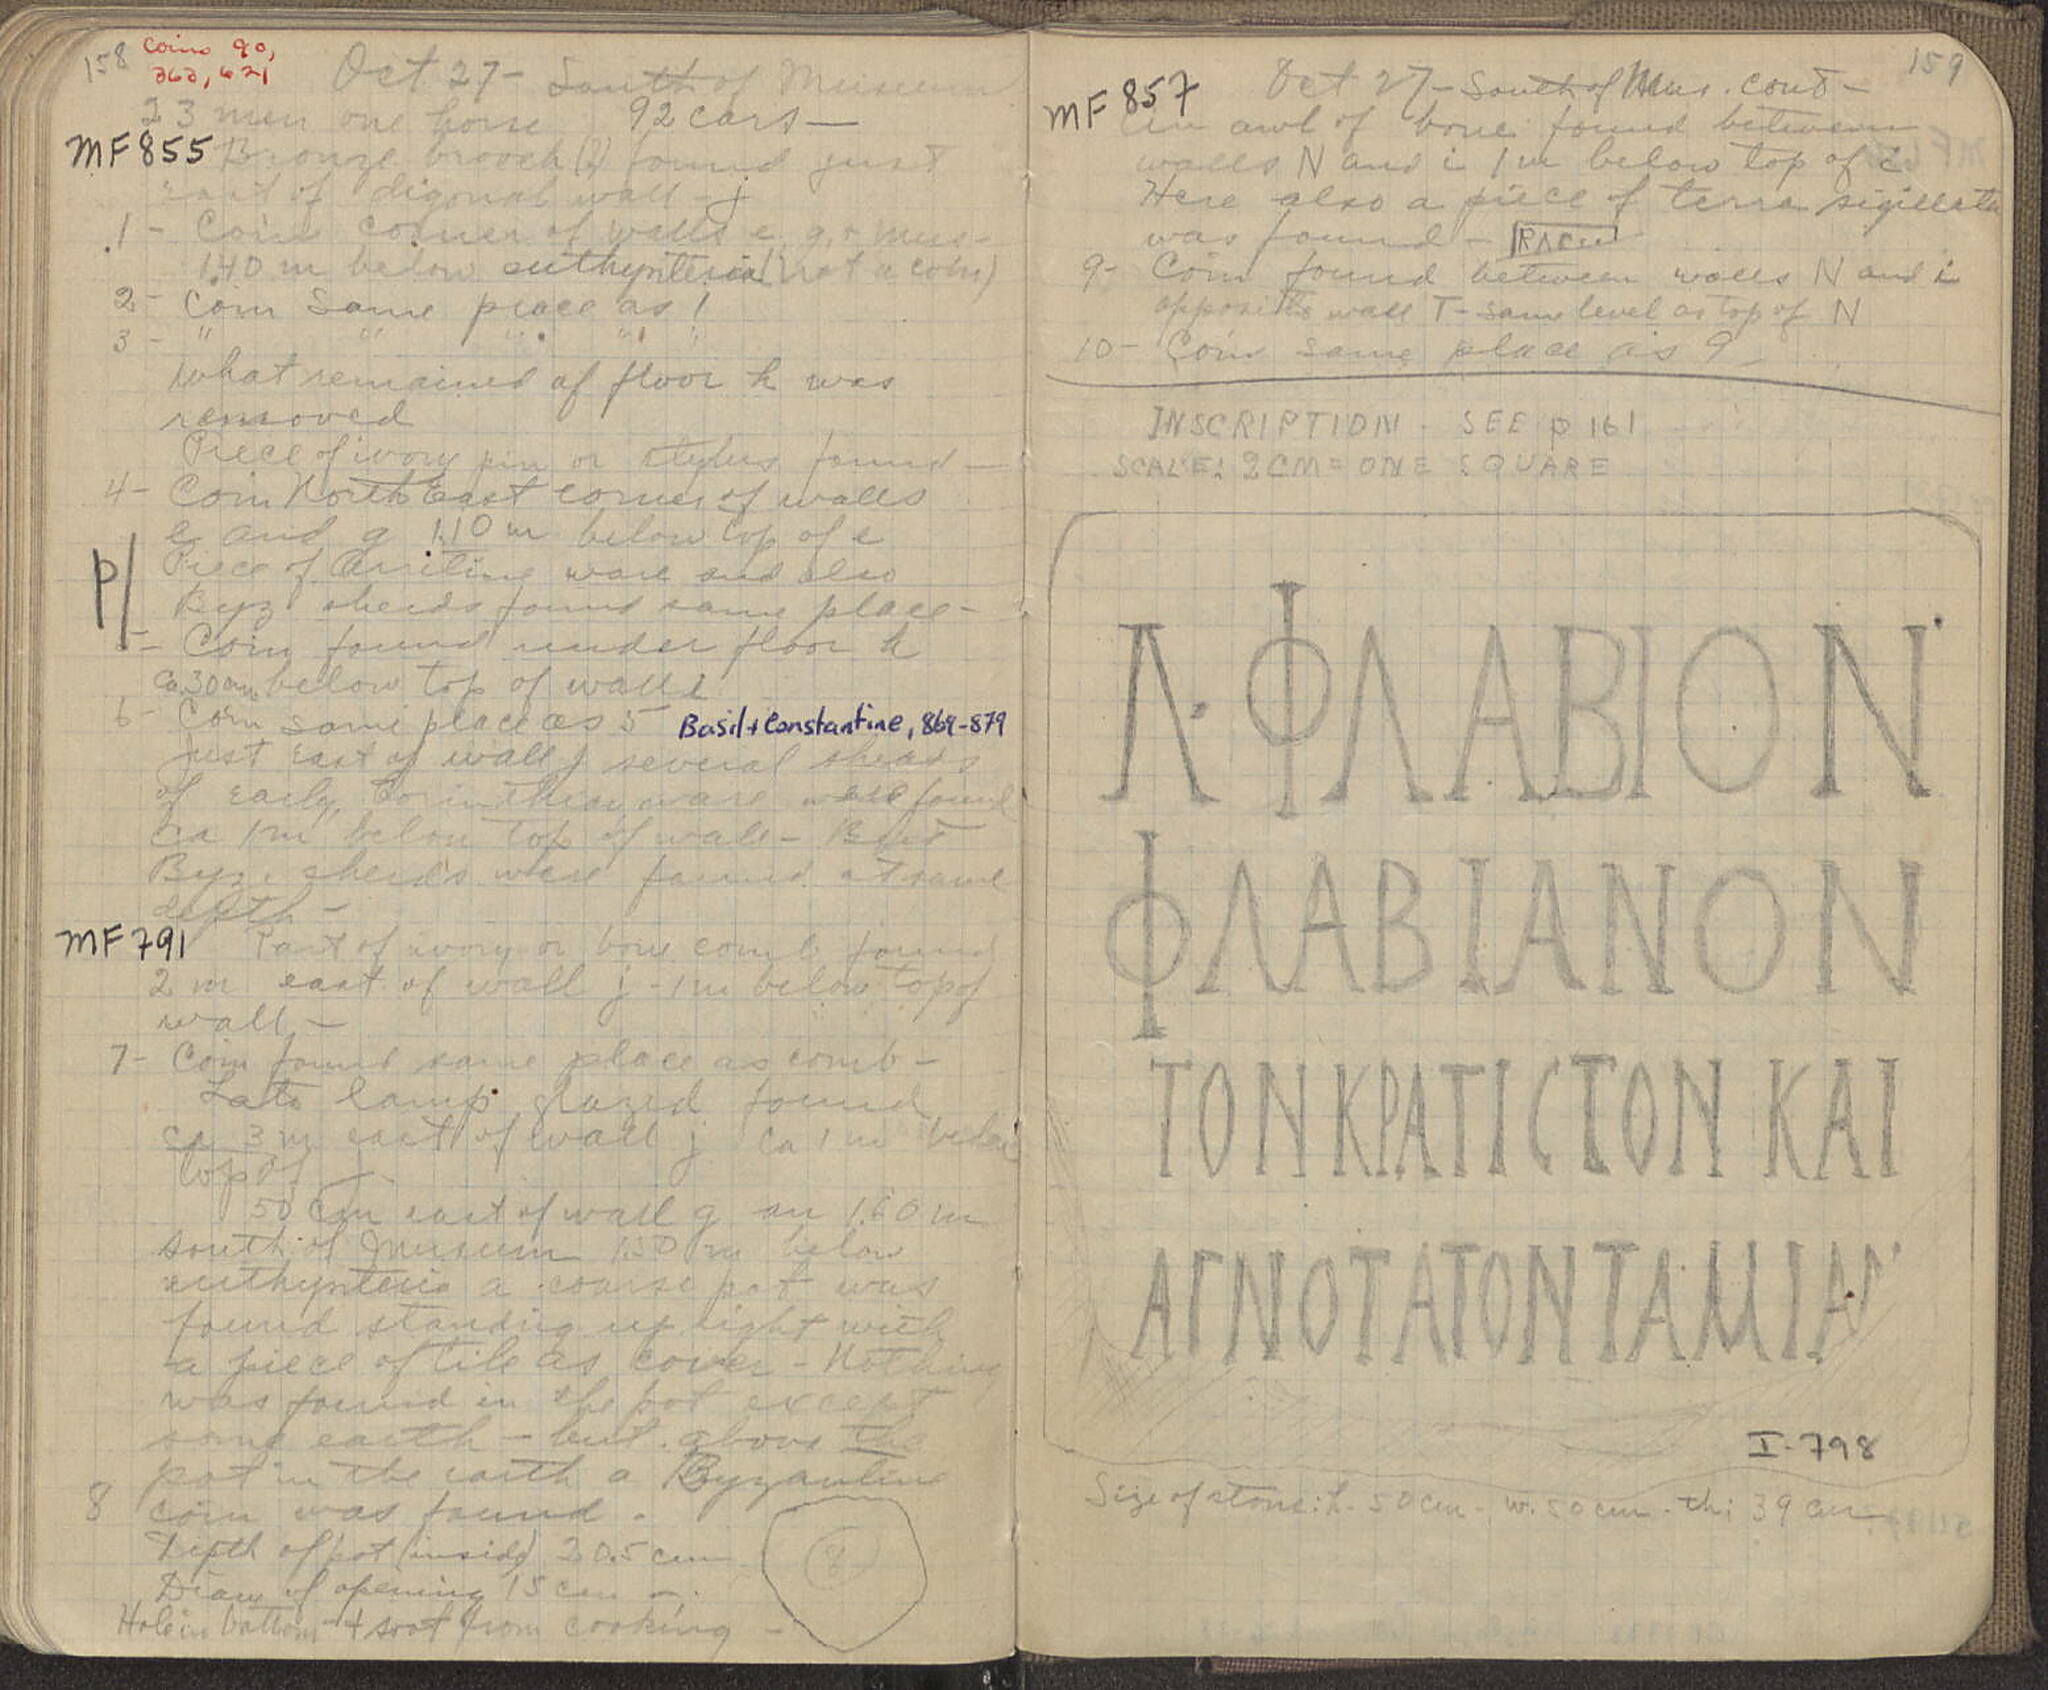 158 Coins 90,
363, 621
Oct 27 - South of Museum
23 men one horse 92 cars —
MF 855 Bronze brooch (?) found just
east of digonal wall - j
1 - Coin corner of walls e, g, + Mus-
1.40 m below euthynteria (not a coin)
2 - Coin Same place as 1
3 - " " " " "
What remained of floor h was
removed
Piece of ivory pin or stylus found —
4 - Coin North East corner of walls
e and g 1.10 m below top of e
P/ Piece of Arretine ware and also
Byz sherds found same place -
- Coin found under floor h
ca 30 cm below top of wall i
6 - Coin same place as 5 Basil + Constantine, 869-879
Just east of wall j several sherds
of early Corinthian ware were found
ca 1 m below top of wall - But
Byz. sherds were found at same
depth -
MF 791 Part of ivory or bone comb found
2 m east of wall j - 1 m below top of
wall -
7 - Coin found same place as comb -
Late lamp glazed found
ca 3 m east of wall j ca 1 m below
top of j
50 cm east of wall g an 1.60 m
south of Museum 1.50 m below
euthynteria a coarse pot was
found standing up right with
a piece of tile as cover - Nothing
was found in the pot except
some earth - but above the
pot in the earth a Byzantine
8 coin was found -
Depth of pot (inside) 20.5 cm
Diam of opening 15 cm -
Hole in bottom + soot from cooking -
8
159
MF 857 Oct 27 - South of Mus. cont -
An awl of bone found between
walls N and i 1 m below top of i
Here also a piece of terra sigillata
was found -
9 - Coin found between walls N and i
opposite wall T - same level as top of N
10 - Coin same place as 9 -
INSCRIPTION - SEE p 161
SCALE: 2 CM = ONE SQUARE
Λ·ΦΛΑΒΙΟΝ
ΦΛΑΒΙΑΝΟΝ
ΤΟΝΚΡΑΤΙϹΤΟΝ ΚΑΙ
ΑΓΝΟΤΑΤΟΝΤΑΜΙΑΝ
I-798
Size of stone: h. 50 cm - w. 50 cm - th: 39 cm